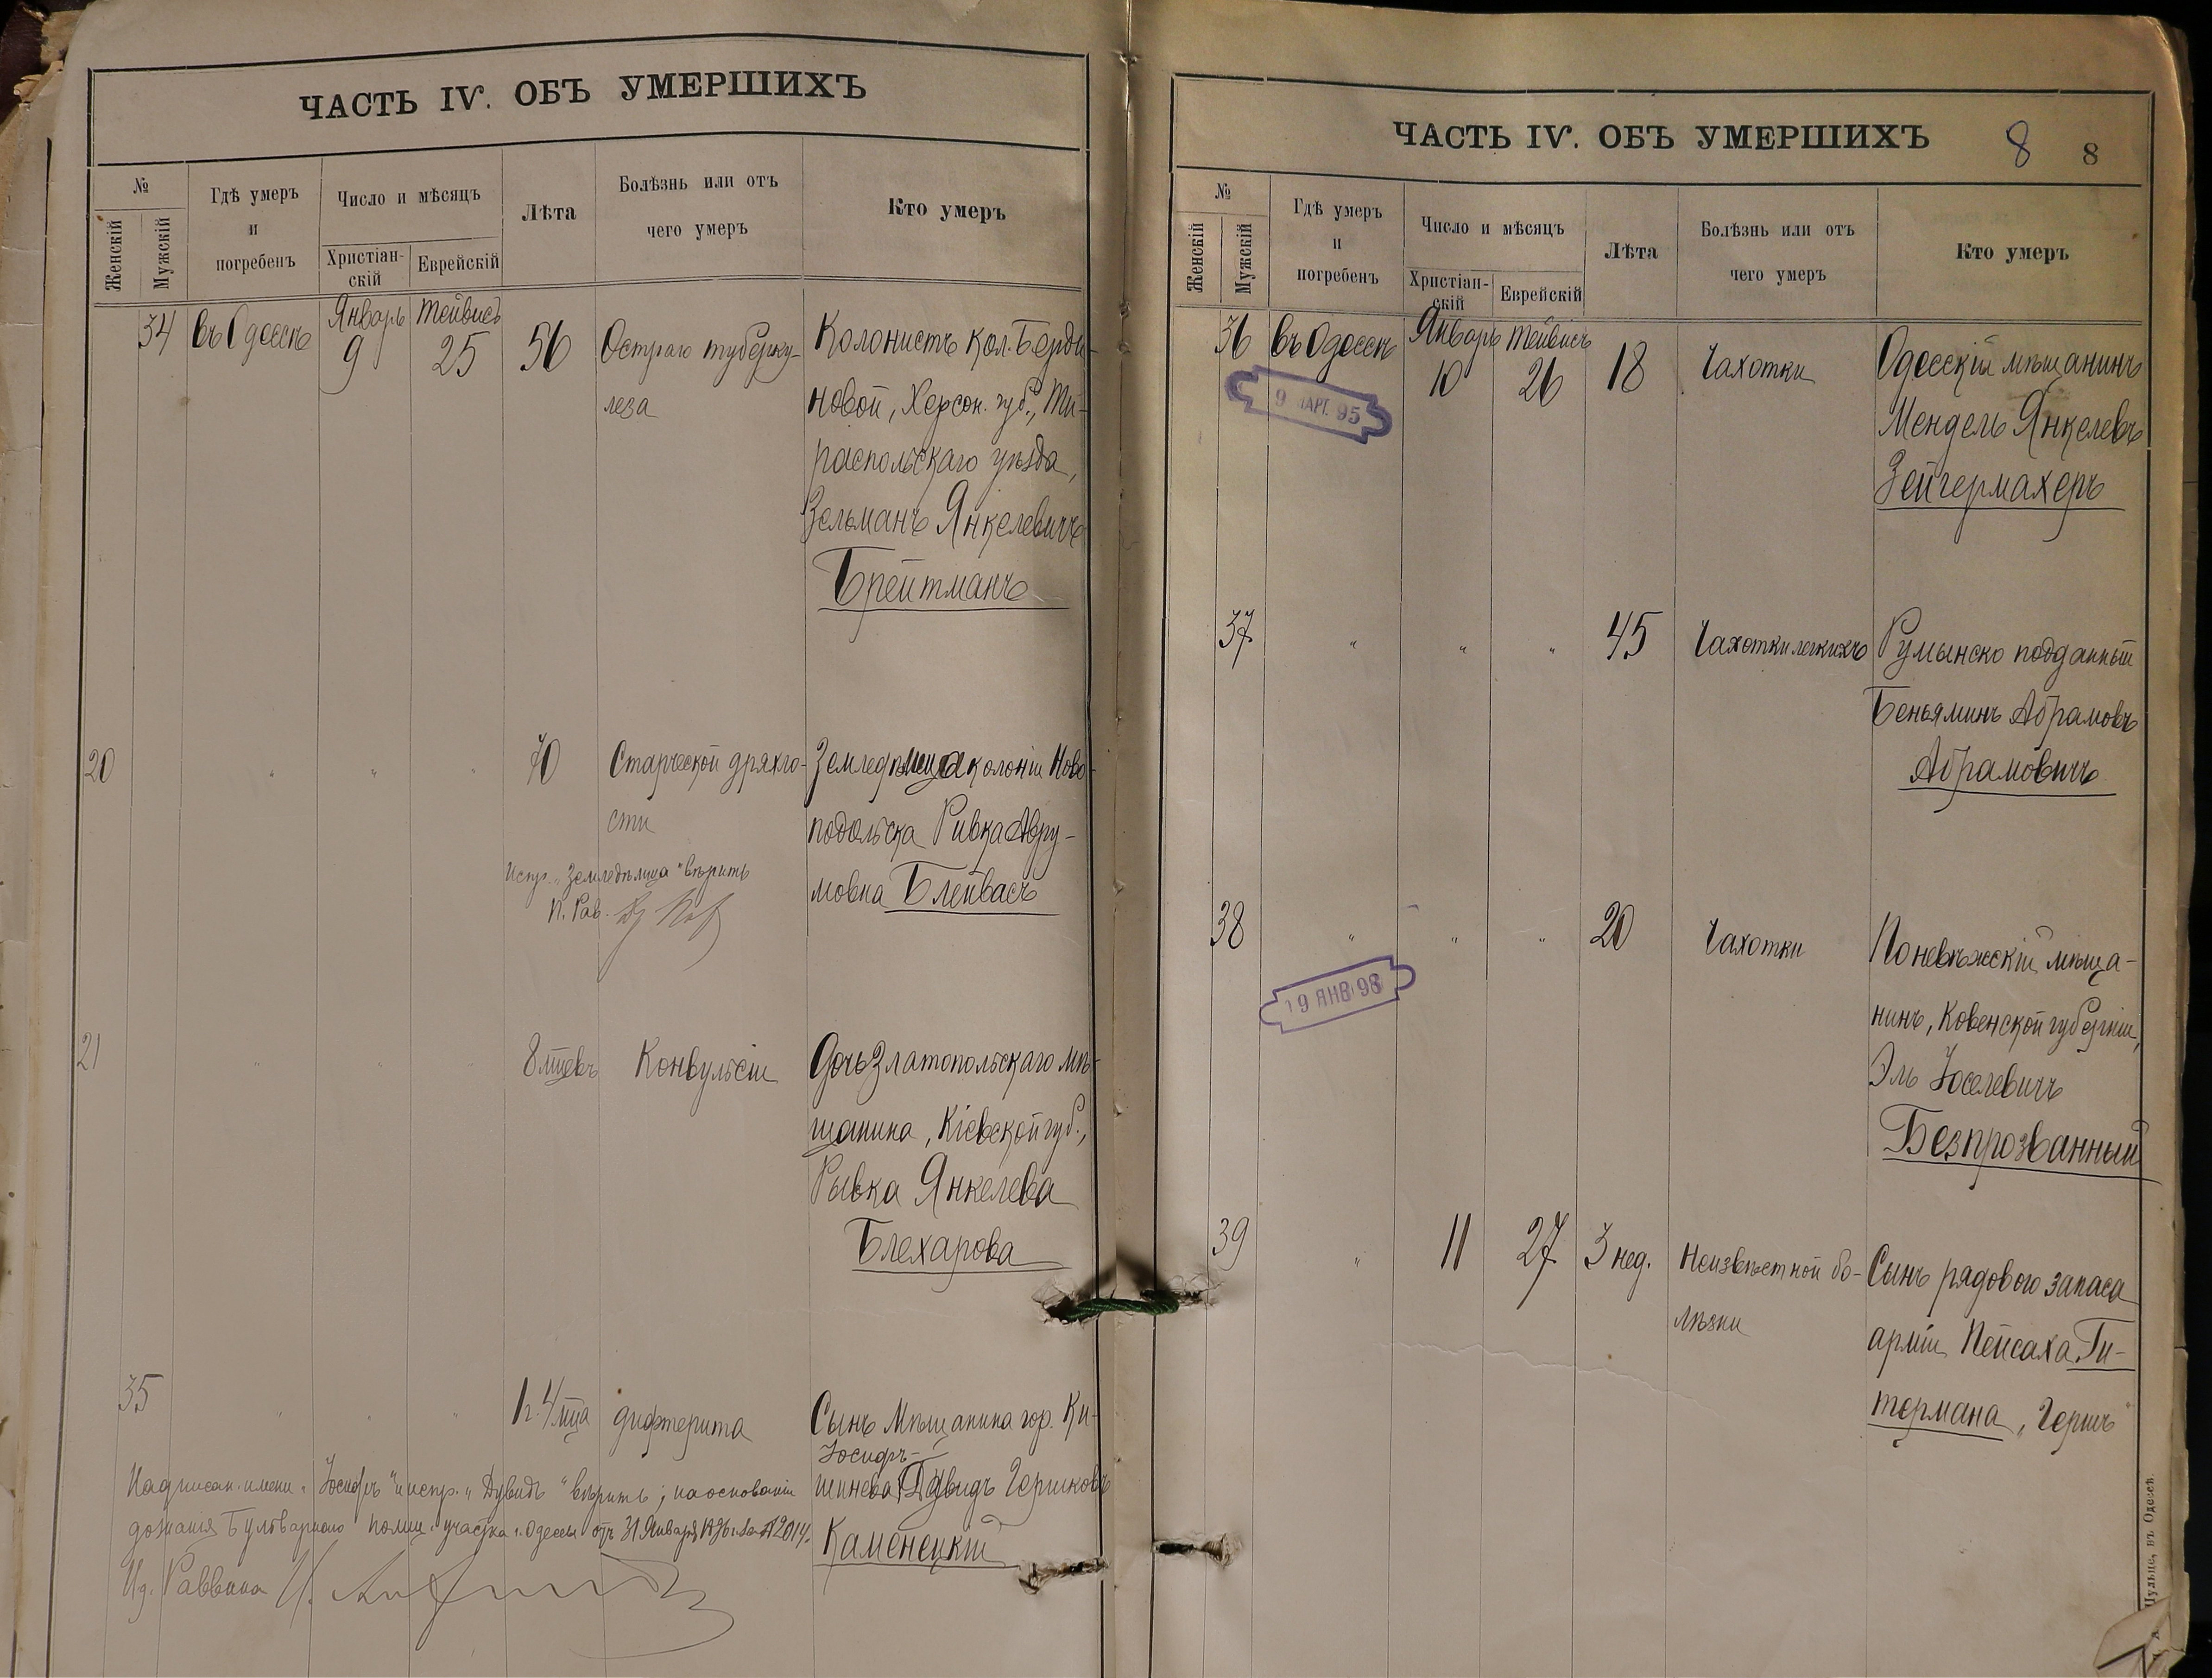 ЧАСТЬ IV. ОБЪ УМЕРШИХЪ
№
Женскій
Мужскій
Гдѣ умеръ
и
погребенъ
Число и мѣсяцъ
Христіан-
скій
Еврейскій
Лѣта
Болѣзнь или отъ
чего умеръ
Кто умеръ
34 въ Одессѣ Январь 9 Тейвисъ 25 56 Остраго туберку-
леза
Колонистъ кол. Берди-
новой, Херсон. губ., Ти-
распольскаго уѣзда,
Зельманъ Янкелевичъ
Брейтманъ
20 " " " 70 Старческой дряхло-
сти
Земледѣлица колоніи Ново-
подольска Ривка Авру-
мовна Блейвасъ
Испр. "Земледѣлица" вѣрить
П. Рав.
21 " " " 8 мцевъ Конвульсіи
Дочь Златопольскаго мѣ-
щанина, Кіевской губ.,
Рывка Янкелева
Блехарова
35 " " " 1 г. 4 мца дифтерита
Сынъ Мѣщанина гор. Ки-
Іосифъ-
шинева Дувидъ Гершковъ
Каменецкій
Надписан. имени "Іосифъ" и испр. "Дувидъ" вѣрить; на основаніи
дознанія Бульварнаго полиц. участка г. Одессы отъ 31 Января за № 2014.
Ид. Раввина
ЧАСТЬ IV. ОБЪ УМЕРШИХЪ 8 8
№
Женскій
Мужскій
Гдѣ умеръ
и
погребенъ
Число и мѣсяцъ
Христіан-
скій
Еврейскій
Лѣта
Болѣзнь или отъ
чего умеръ
Кто умеръ
36 въ Одессѣ Январь 10 Тейвисъ 26 18 Чахотки
Одесскій мѣщанинъ
Мендель Янкелевъ
Зейгермахеръ
9 МАРТ. 95
37 " " " 45 Чахотки легкихъ
Румынско подданный
Беньяминъ Абрамовъ
Абрамовичъ
38 " " " 20 Чахотки
Поневѣжскій мѣща-
нинъ, Ковенской губерніи,
Эль Іоселевичъ
Безпрозванный
19 ЯНВ 98
39 " 11 27 3 нед. Неизвѣстной бо-
лѣзни
Сынъ рядового запаса
арміи Пейсаха Ги-
термана, Гершъ
Шульце, въ Одессѣ.